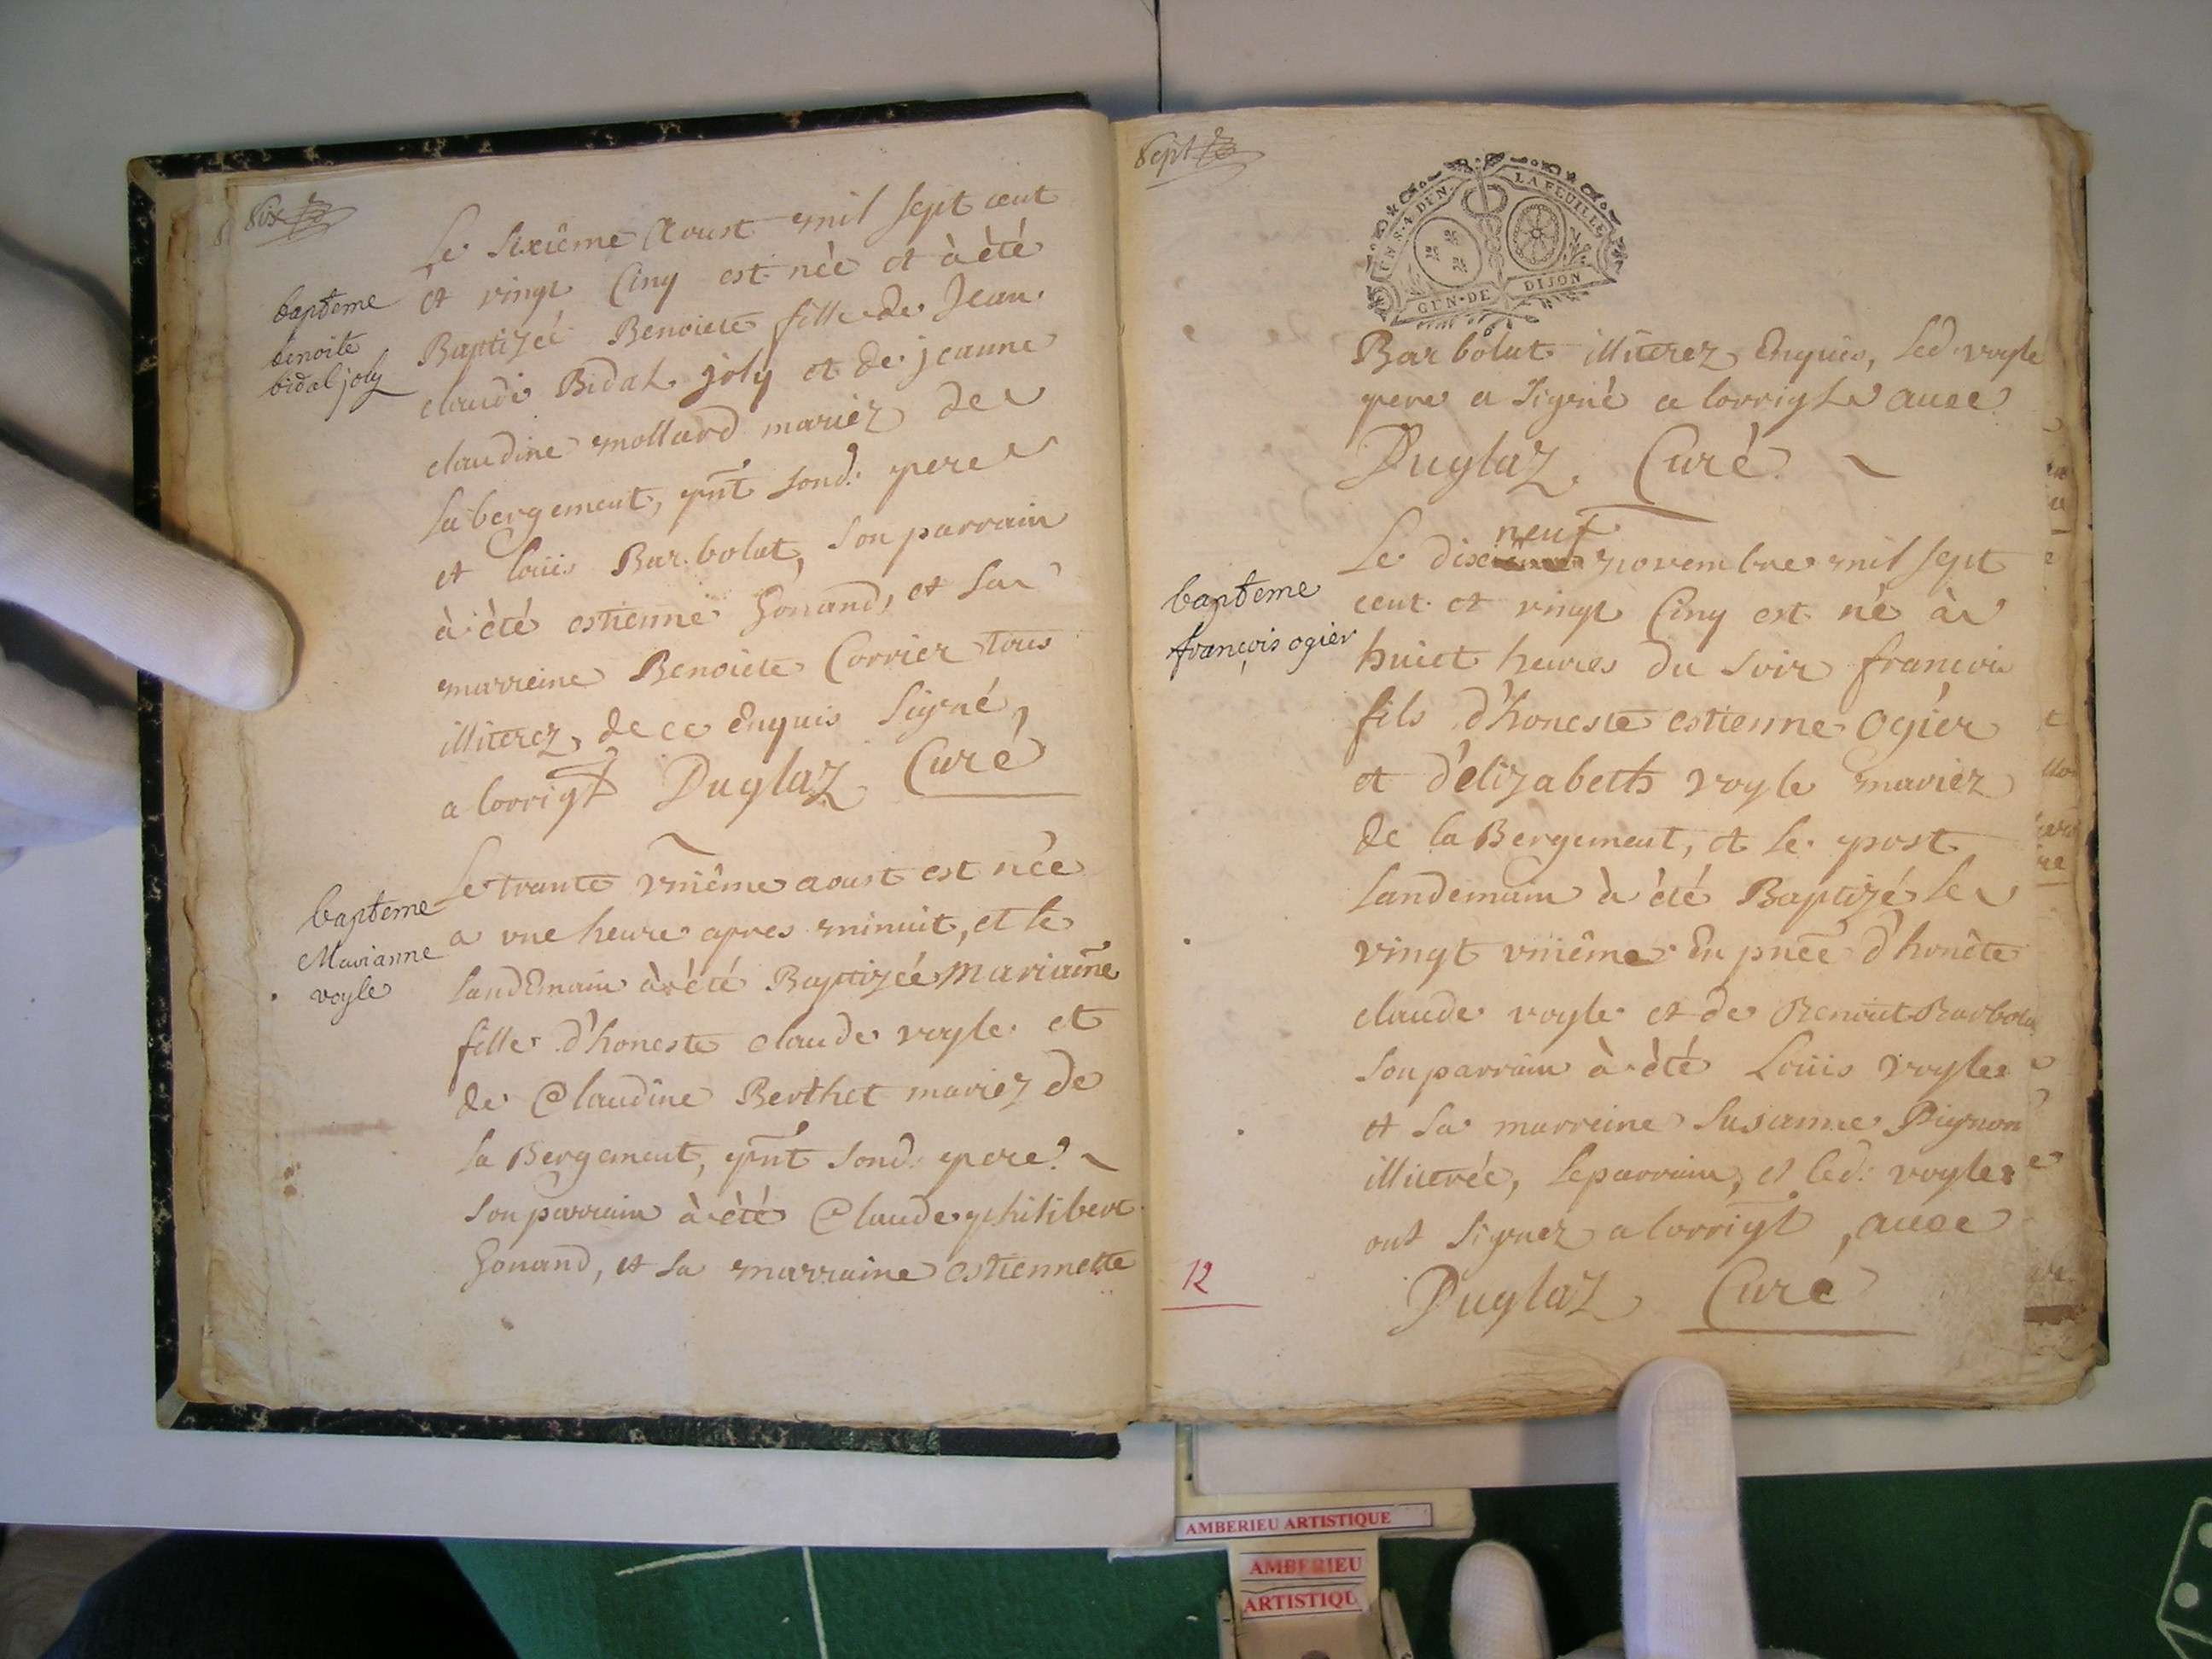 Six
Le sixième Aoust mil sept cent
et vingt Cinq est née et à été
Baptizée Benoiete fille de Jean
claude Bidal joly et de jeanne
claudine mollard mariez de
la bergement, pñt sond. pere
et loüis Bar.bolat, son parrain
à été estienne Gonand, et sa
marreine Benoiete Corrier tous
illiterez, de ce Enquis Signé,
a lorrigl Puglaz Curé
bapteme
benoite
bidal joly
Le trante vniême aoust est née
a vne heure apres minuit, et le
landEmain à été Baptizée Mariañe
fille d'honeste claude voyle et
de Claudine Berthet mariez de
la Bergement, pñt sond. pere
son parrain à été Claude philibert
Gonand, et sa marraine estiennette
bapteme
Marianne
voyle
Sept
UN S. 4 DEN. LA FEUILLE
GEN. DE DIJON
Barbolat illiterez Enquis, led. voyle
pere a Signé a lorrigl avec
Puglaz Curé
neuf
Le dix novembre mil sept
cent et vingt Cinq est né à
huict heures du soir francois
fils d'honeste estienne Ogier
et d'elizabeth voyle mariez
de la Bergement, et le post
landemain à été Baptizé le
vingt vniême En pñce d'honête
claude voyle et de Benoit Barbola
son parrain à été Loüis voyle
et sa marreine Susanne Pignon
illiterée, le parrain, et led. voyle
ont Signez a lorrigl, avec
Puglaz Curé
bapteme
françois ogier
12
AMBERIEU ARTISTIQUE
AMBERIEU
ARTISTIQU